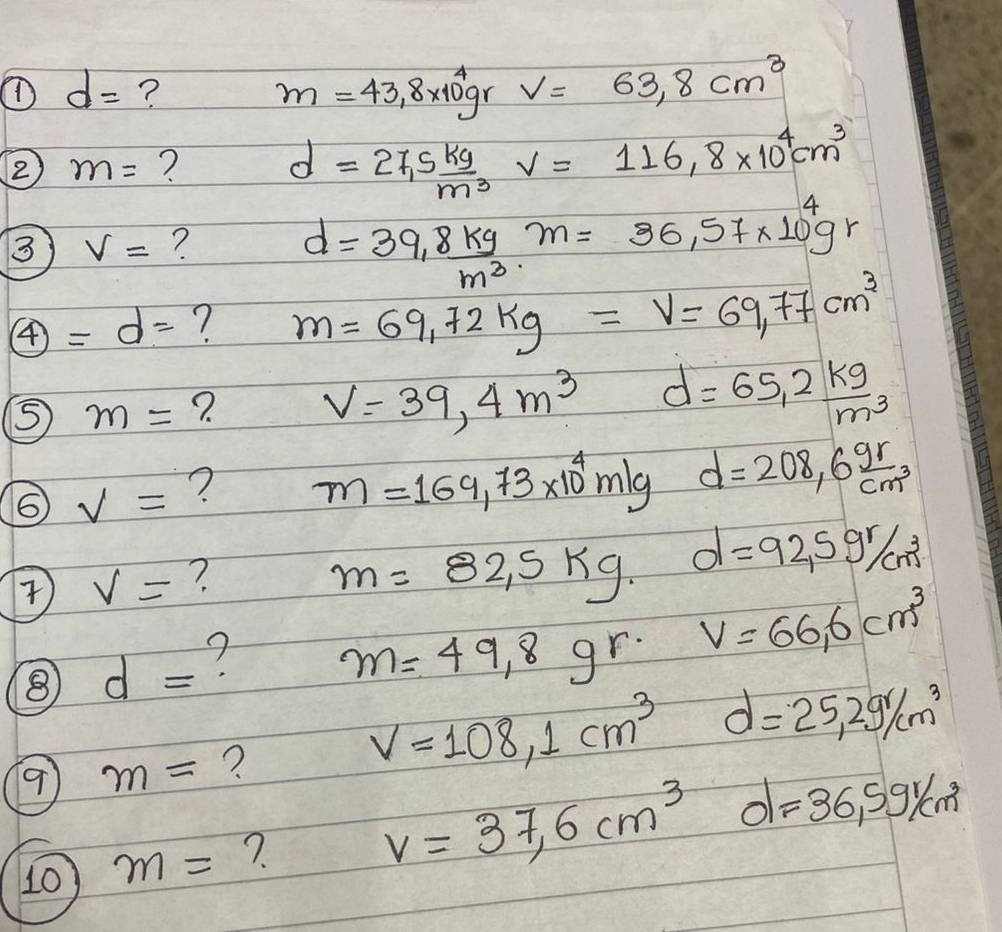 ① d = ? m = 43,8×10⁴gr v = 63,8 cm³
② m = ? d = 27,5 kg/m³ v = 116,8×10⁴cm³
③ v = ? d = 39,8 kg/m³. m = 36,57×10⁴gr
④ = d = ? m = 69,72 kg = v = 69,77 cm³
⑤ m = ? v = 39,4 m³ d = 65,2 kg/m³
⑥ v = ? m = 169,73×10⁴ mlg d = 208,6 gr/cm³
⑦ v = ? m = 82,5 kg. d = 92,5 gr/cm³
⑧ d = ? m = 49,8 gr. v = 66,6 cm³
⑨ m = ? v = 108,1 cm³ d = 25,2 gr/cm³
⑩ m = ? v = 37,6 cm³ d = 36,5 gr/cm³